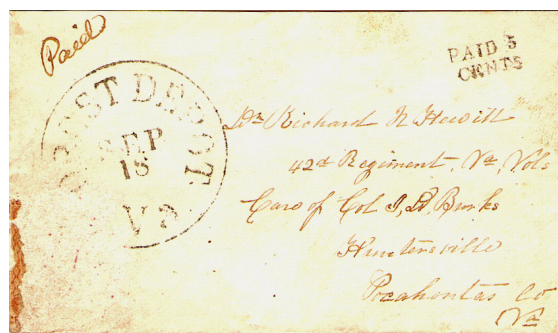 Paid
PAID 5
CENTS
REST DEPOT
SEP
18
Va
Dr Richard N Hewitt
42d Regiment, Va, Vols
Care of Col J, A, Burks
Huntersville
Pocahontas Co
Va